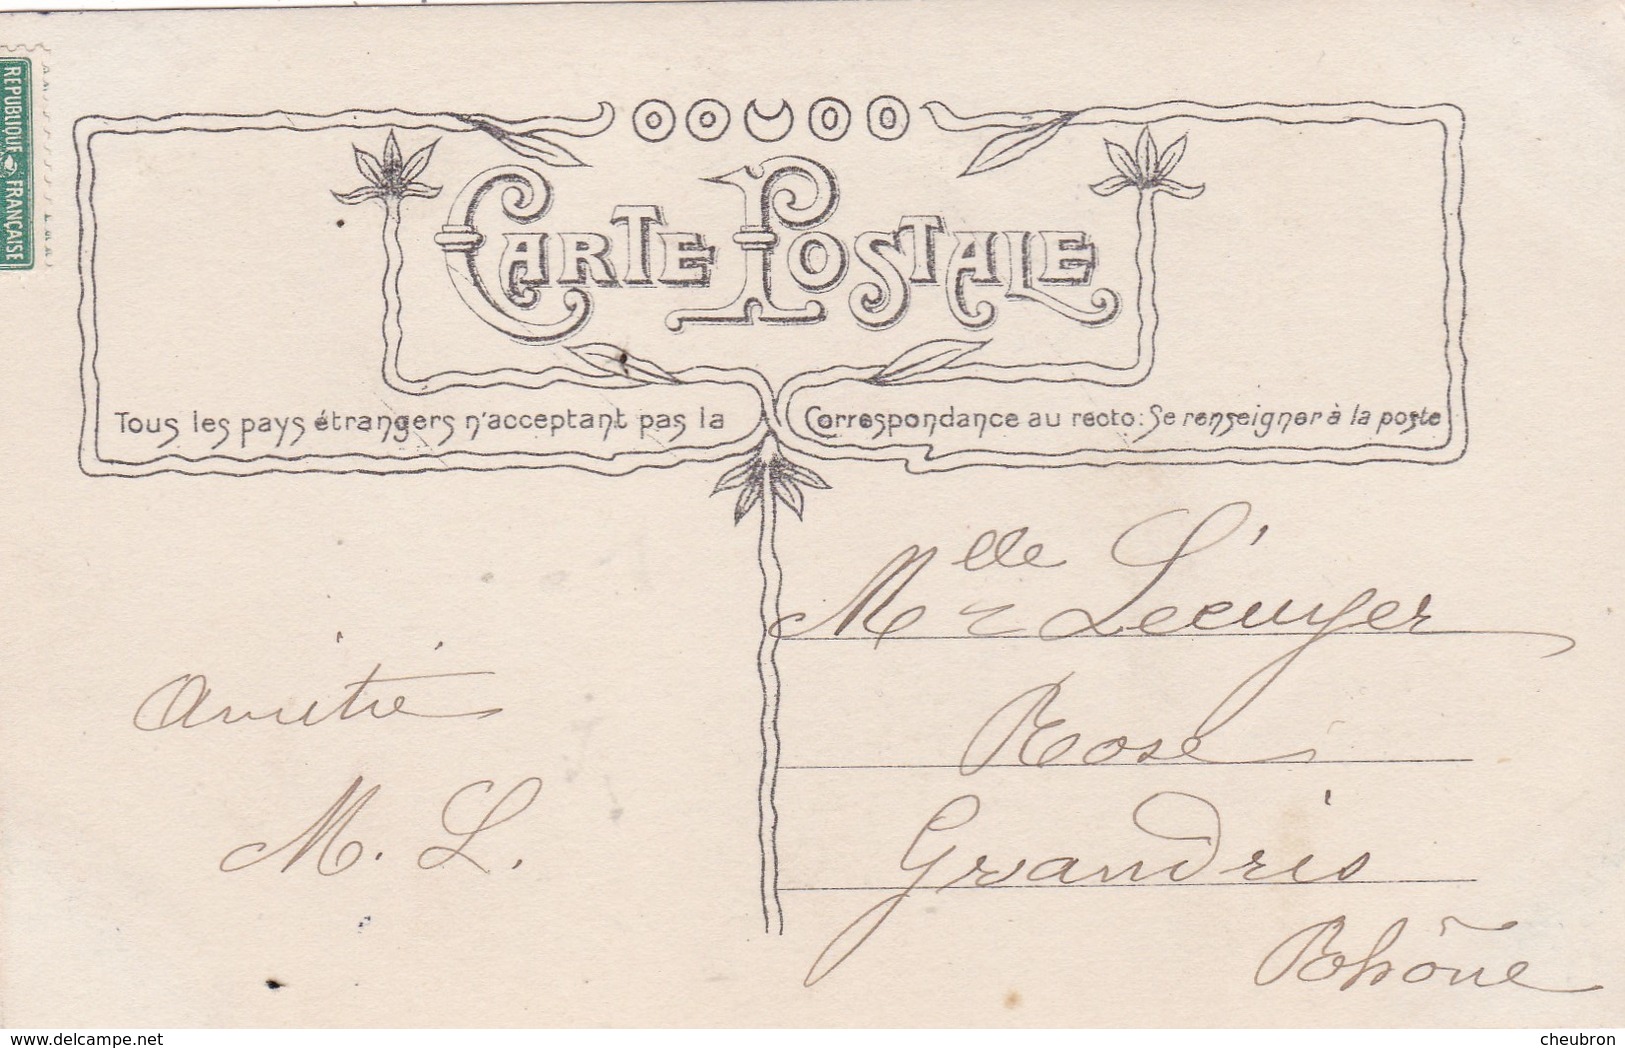 REPUBLIQUE FRANÇAISE
CARTE POSTALE
Tous les pays étrangers n'acceptant pas la Correspondance au recto: Se renseigner à la poste
Melle Lécuyer
Rose
Grandris
Rhône
Amitié
M. L.
www.delcampe.net
cheubron